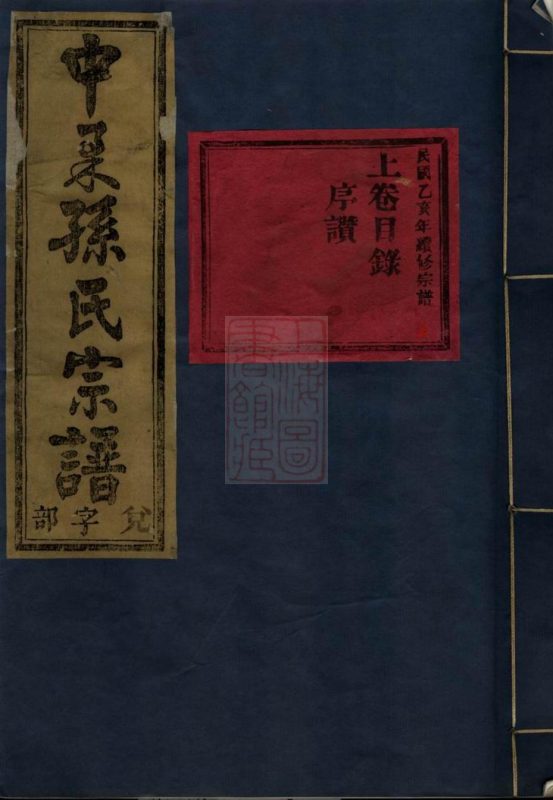 民國乙亥年續修宗譜
上卷目錄
序讚
中孫氏宗譜
兌字部
上海圖
書館